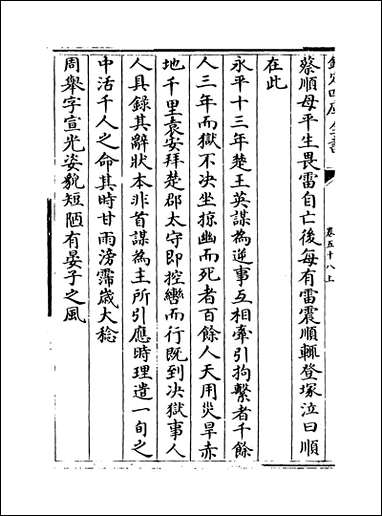 欽定四庫全書
卷五十八上
蔡順母平生畏雷自亡後每有雷震順輒登塚泣曰順
在此
永平十三年楚王英謀為逆事互相牽引拘繫者千餘
人三年而獄不决坐掠幽而死者百餘人天用炎旱赤
地千里袁安拜楚郡太守即控轡而行既到决獄事人
人具録其辭狀本非首謀為主所引應時理遣一旬之
中活千人之命其時甘雨滂霈歳大稔
周舉字宣光姿貌短陋有晏子之風